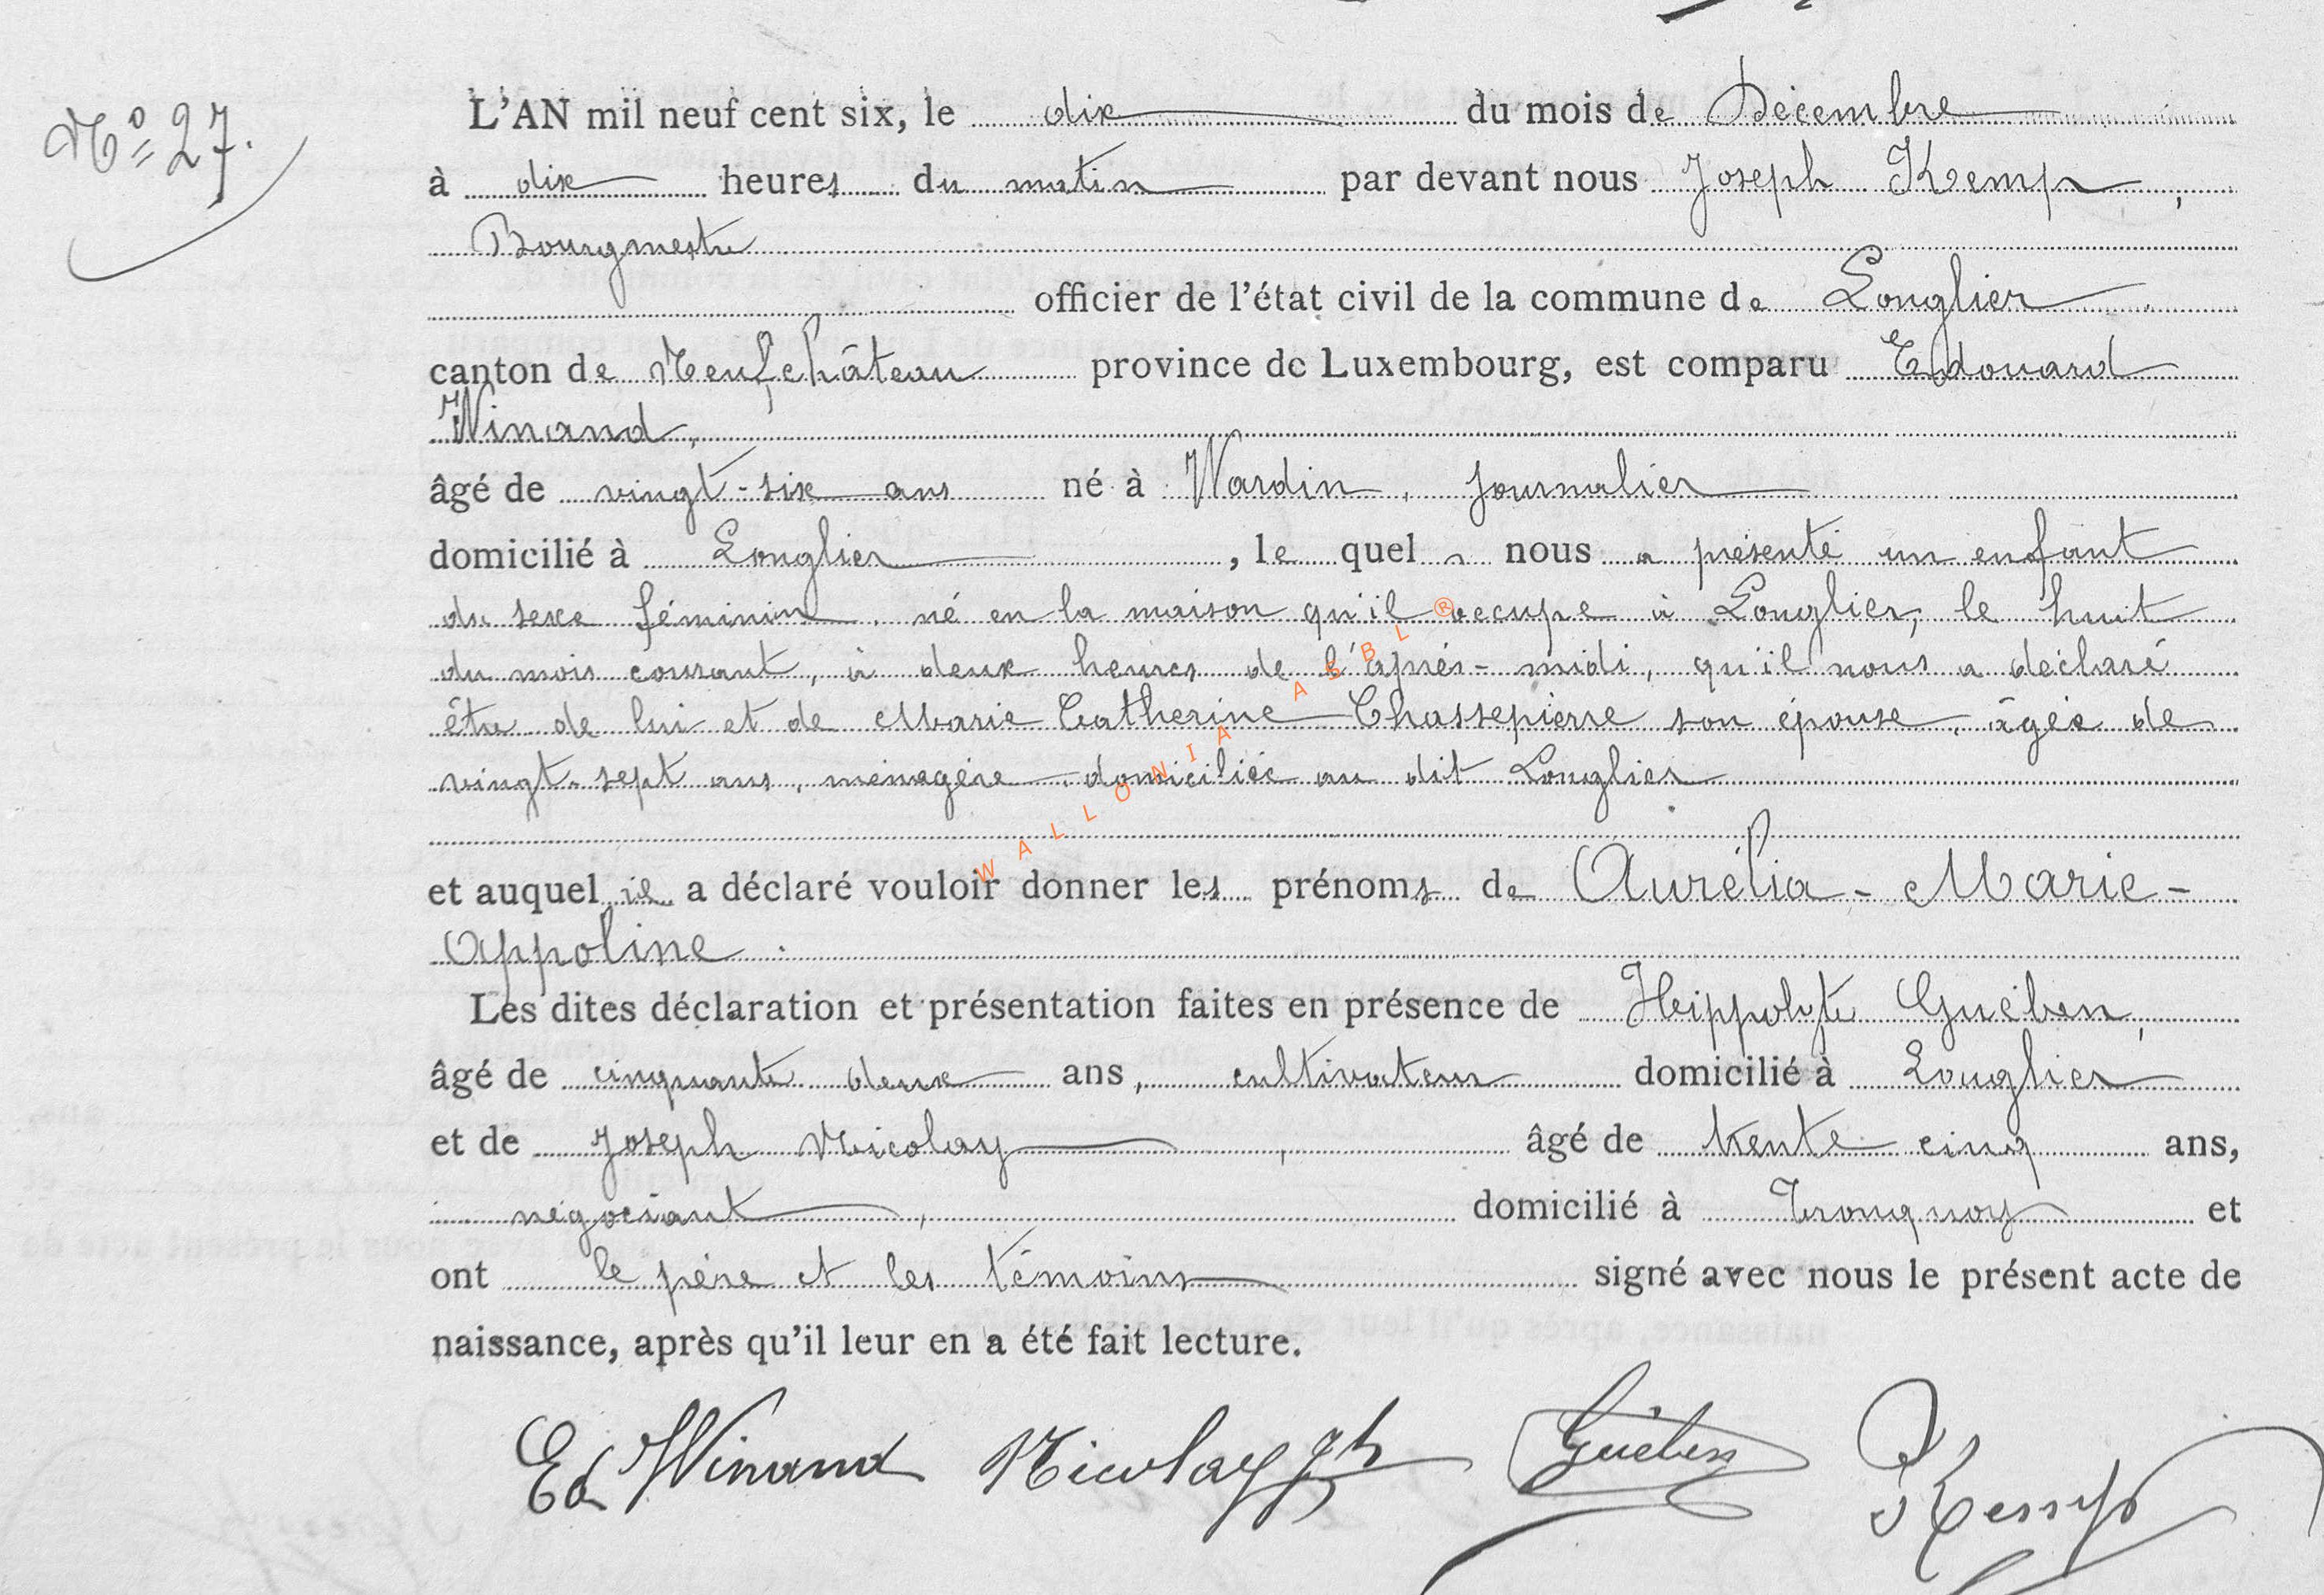 Nº 27.
L'AN mil neuf cent six, le dix du mois de Décembre
à dix heures du matin par devant nous Joseph Kemp,
Bourgmestre
officier de l'état civil de la commune de Longlier
canton de Neufchâteau province de Luxembourg, est comparu Edouard
Winand,
âgé de vingt-six ans né à Wardin, journalier
domicilié à Longlier, le quel nous a présenté un enfant
du sexe féminin, né en la maison qu'il occupe à Longlier, le huit
du mois courant, à deux heures de l'après-midi, qu'il nous a déclaré
être de lui et de Marie Catherine Chassepierre son épouse, âgée de
vingt-sept ans, ménagère, domiciliée au dit Longlier
et auquel il a déclaré vouloir donner les prénoms de Aurélia-Marie-
Appoline.
Les dites déclaration et présentation faites en présence de Hippolyte Guében,
âgé de cinquante deux ans, cultivateur domicilié à Longlier
et de Joseph Nicolay, âgé de trente cinq ans,
négociant, domicilié à Tronquoy et
ont le père et les témoins signé avec nous le présent acte de
naissance, après qu'il leur en a été fait lecture.
Ed Winand Nicolay Jh Guében Kemp
WALLONIA ASBL ®